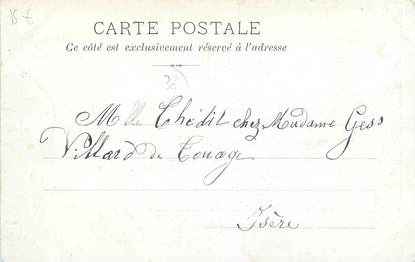 15 €
CARTE POSTALE
Ce côté est exclusivement réservé à l'adresse
38
Mlle Chédil chez Madame Gess
Villard de Touage
Isère